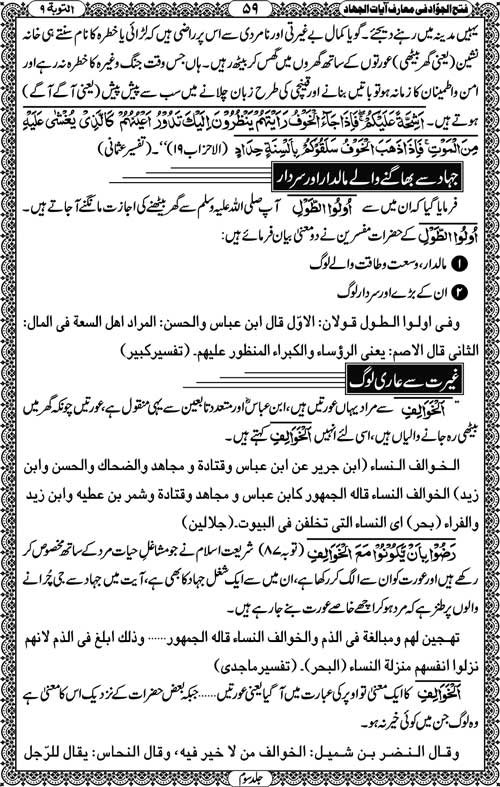 فتح الجوّاد فی معارف آیات الجهاد
۵۹
التوبۃ ۹
یہیں مدینہ میں رہنے دیجئے۔ گویا کمال بے غیرتی اور نامردی سے اس پر راضی ہیں کہ لڑائی یا خطرہ کا نام سنتے ہی خانہ
نشین (یعنی گھر بیٹھی) عورتوں کے ساتھ گھروں میں گھس کر بیٹھ رہیں۔ ہاں جس وقت جنگ وغیرہ کا خطرہ نہ رہے اور
امن و اطمینان کا زمانہ ہو تو باتیں بنانے اور قینچی کی طرح زبان چلانے میں سب سے پیش پیش (یعنی آگے آگے)
ہوتے ہیں۔ اَشِحَّةً عَلَیْكُمْ فَاِذَا جَآءَ الْخَوْفُ رَاَیْتَهُمْ یَنْظُرُوْنَ اِلَیْكَ تَدُوْرُ اَعْیُنُهُمْ كَالَّذِیْ یُغْشٰی عَلَیْهِ
مِنَ الْمَوْتِ فَاِذَا ذَهَبَ الْخَوْفُ سَلَقُوْكُمْ بِاَلْسِنَةٍ حِدَادٍ (الاحزاب ۱۹)‘‘۔ (تفسیر عثمانی)
جہاد سے بھاگنے والے مالدار اور سردار
فرمایا گیا کہ ان میں سے اُولُوا الطَّوْلِ آپ صلی اللہ علیہ وسلم سے گھر بیٹھنے کی اجازت مانگنے آجاتے ہیں۔
اُولُوا الطَّوْلِ کے حضرات مفسرین نے دو معنیٰ بیان فرمائے ہیں:
❶ مالدار، وسعت و طاقت والے لوگ
❷ ان کے بڑے اور سردار لوگ
وفی اولوا الطول قولان: الاوّل قال ابن عباس والحسن: المراد اهل السعة فی المال:
الثانی قال الاصم: یعنی الرؤساء والکبراء المنظور علیهم۔ (تفسیرکبیر)
غیرت سے عاری لوگ
اَلْخَوَالِفِ سے مراد یہاں عورتیں ہیں، ابن عباسؓ اور متعدد تابعین سے یہی منقول ہے، عورتیں چونکہ گھر میں
بیٹھی رہ جانے والیاں ہیں، اسی لئے انہیں اَلْخَوَالِفِ کہتے ہیں۔
الخوالف النساء (ابن جریر عن ابن عباس وقتادة و مجاهد والضحاك والحسن وابن
زید) الخوالف النساء قاله الجمهور کابن عباس و مجاهد وقتادة وشمر بن عطیه وابن زید
والفراء (بحر) ای النساء التی تخلفن فی البیوت۔(جلالین)
رَضُوْا بِاَنْ یَّكُوْنُوْا مَعَ الْخَوَالِفِ (توبہ ۸۷) شریعت اسلام نے جو مشاغلِ حیات مرد کے ساتھ مخصوص کر
رکھے ہیں اور عورت کو ان سے الگ کر رکھا ہے، ان میں سے ایک شغل جہاد کا بھی ہے، آیت میں جہاد سے جی چُرانے
والوں پر طنز ہے کہ مرد ہو کر اچھے خاصے عورت بنے جا رہے ہیں۔
تهجین لهم ومبالغة فی الذم والخوالف النساء قاله الجمهور...... وذلك ابلغ فی الذم لانهم
نزلوا انفسهم منزلة النساء (البحر)۔ (تفسیرماجدی)
اَلْخَوَالِفِ کا ایک معنیٰ تو اوپر کی عبارت میں آگیا یعنی عورتیں......جبکہ بعض حضرات کے نزدیک اس کا معنیٰ ہے
وہ لوگ جن میں کوئی خیر نہ ہو۔
وقال النضر بن شمیل: الخوالف من لا خیر فیه، وقال النحاس: یقال للرّجل
جلد سوم